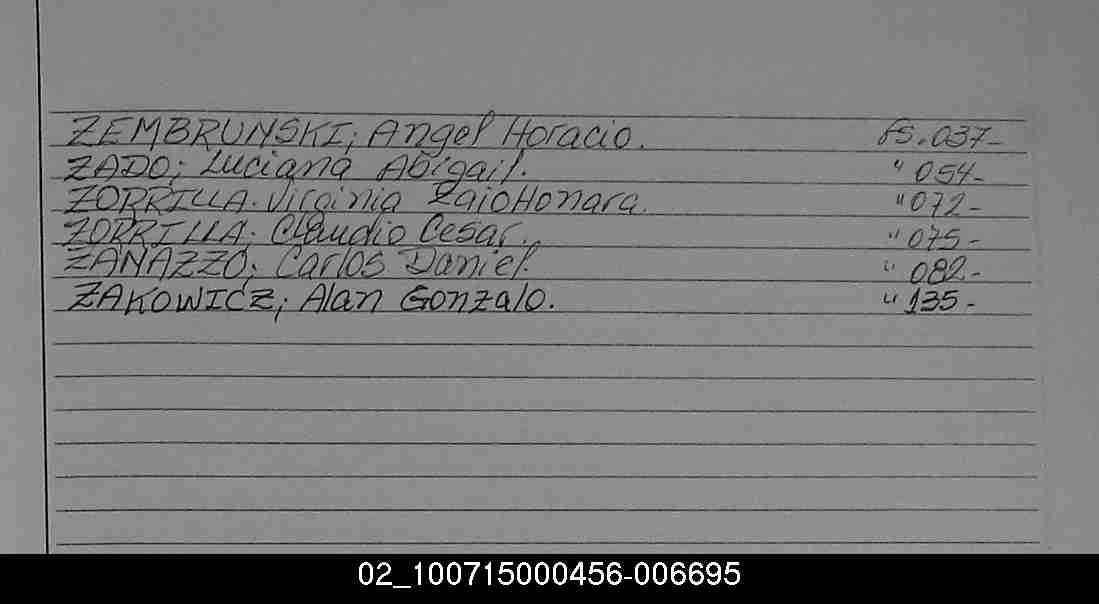 ZEMBRUNSKI; Angel Horacio. FS.037-
ZADO; Luciana Abigail. " 054-
ZORRILLA. Virginia " 072-
ZORRILLA; Claudio Cesar. " 075-
ZANAZZO; Carlos Daniel. " 082-
ZAKOWICZ; Alan Gonzalo. " 135-
02_100715000456-006695